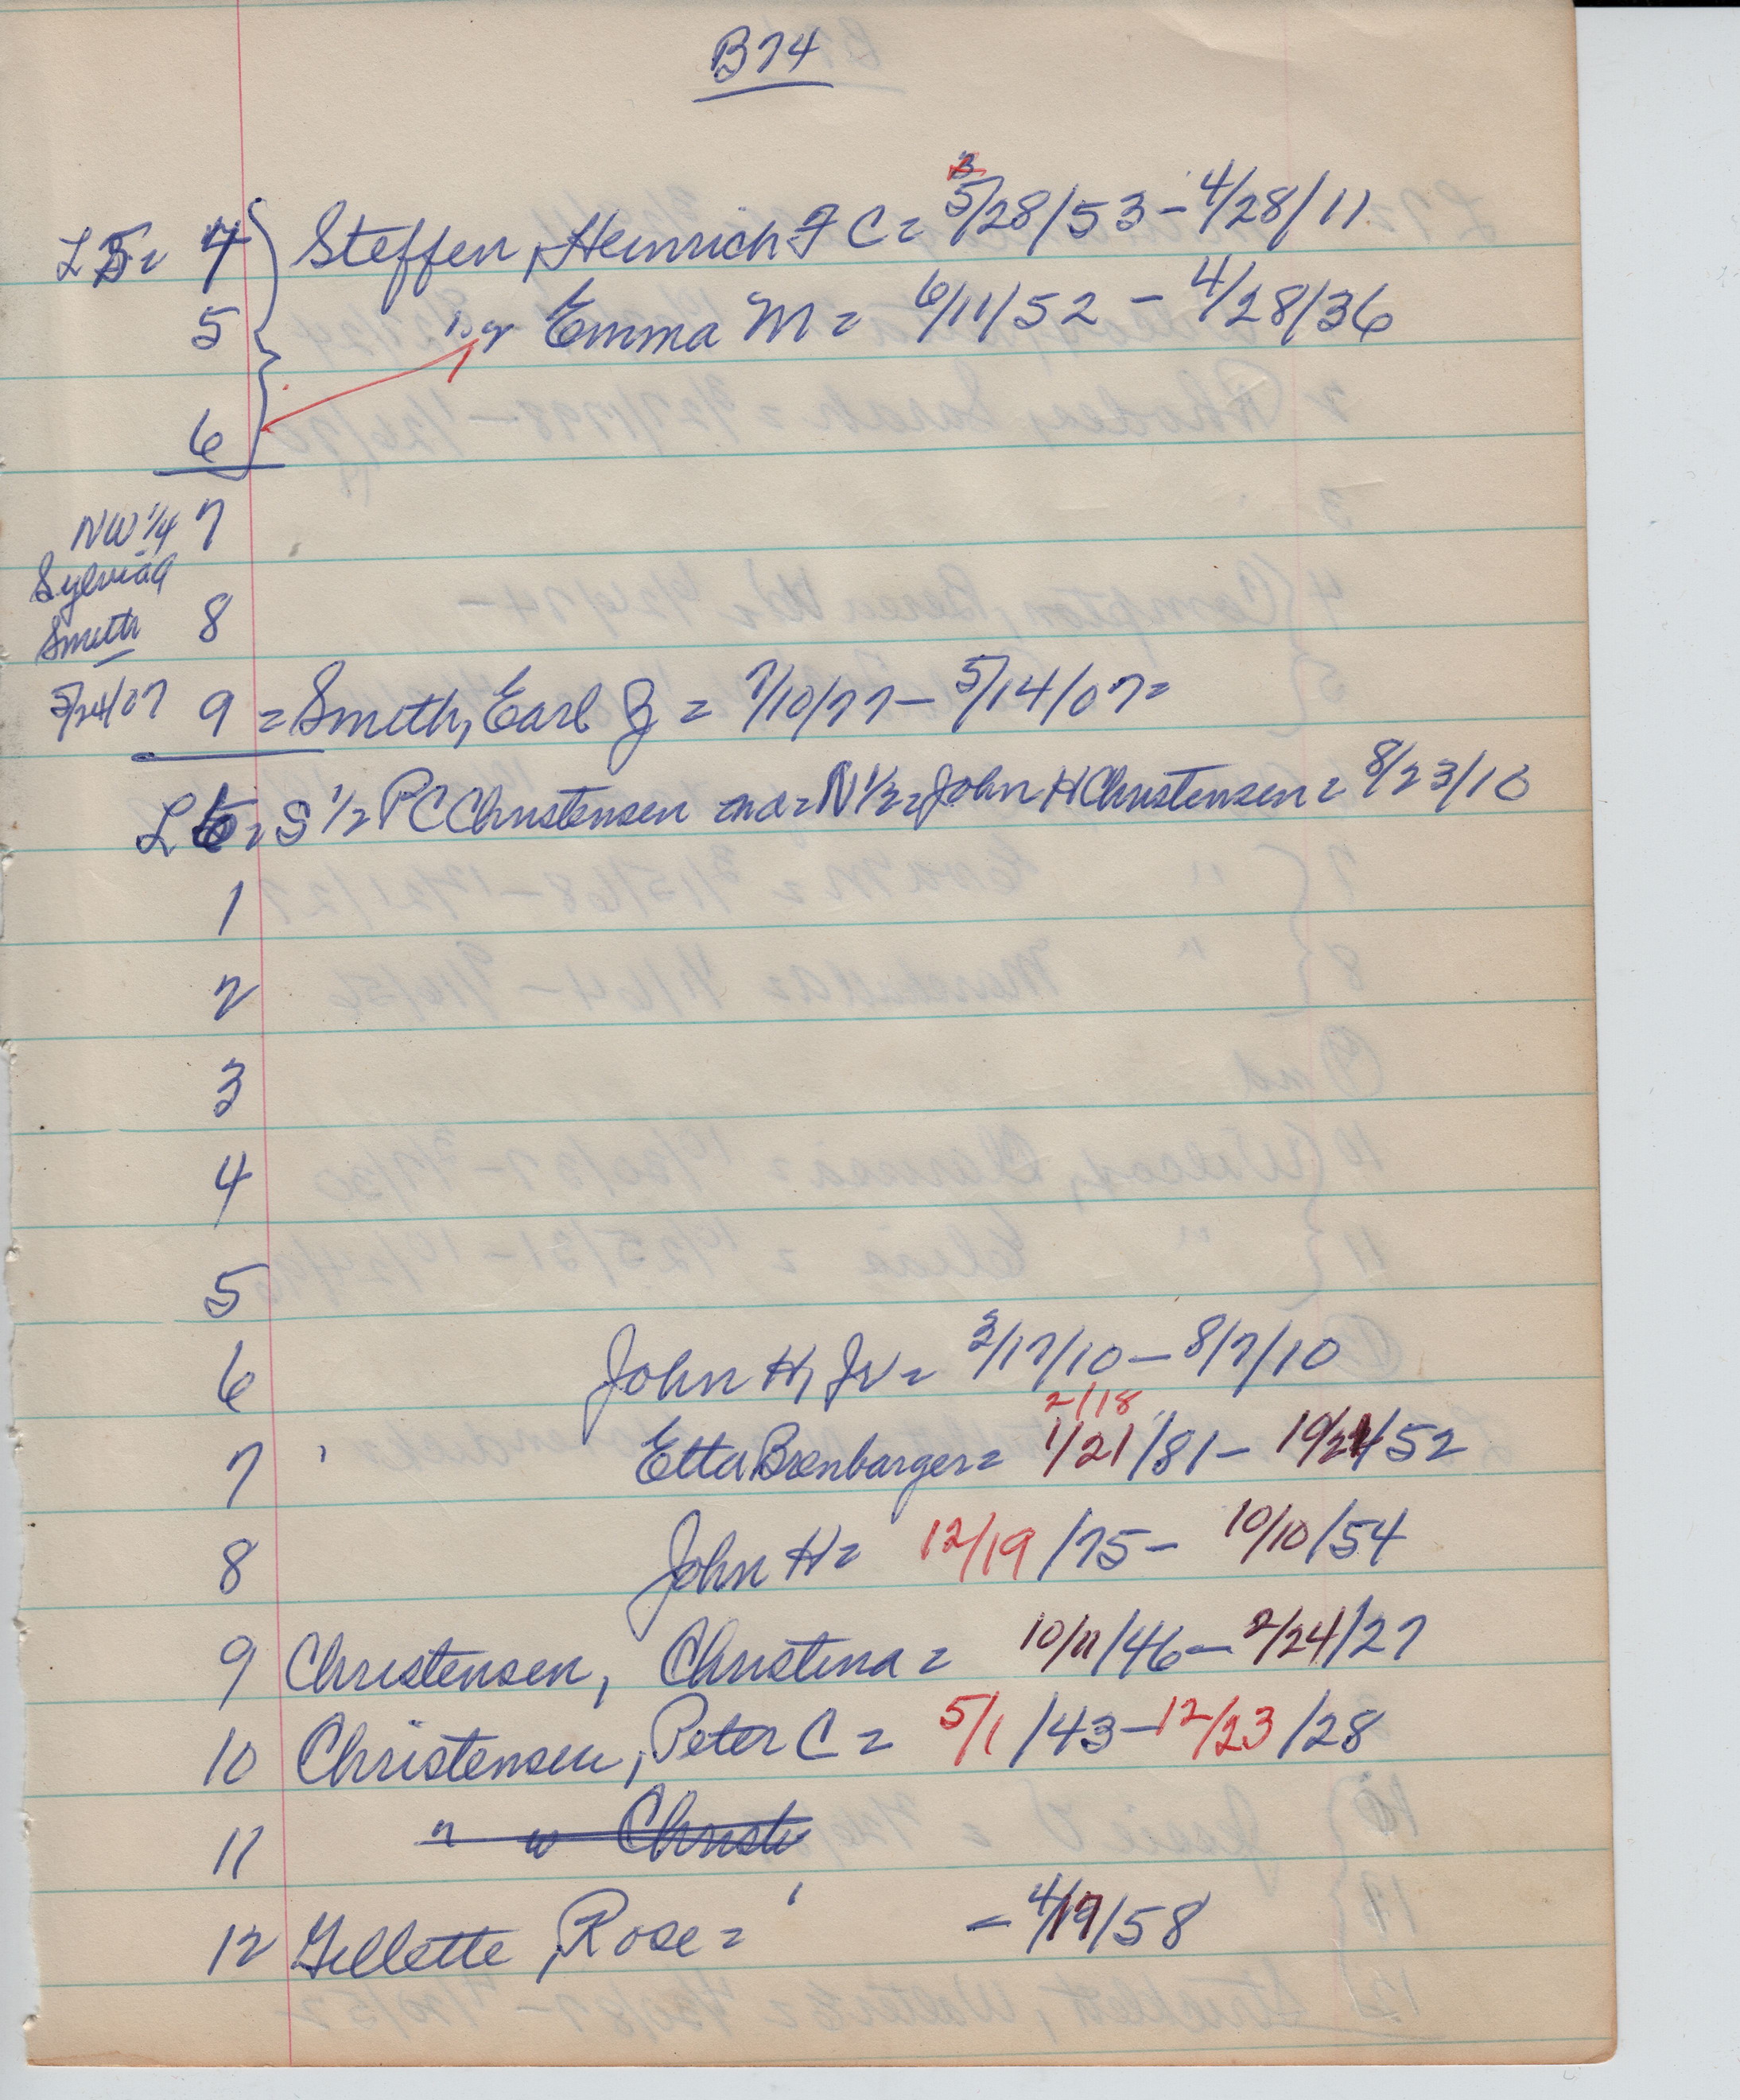 B74
L5= 4 Steffen, Heinrich F C = 5/28/53 - 4/28/11
5 " " Emma M = 6/11/52 - 4/28/36
6
NW 1/4 7
Sylvia A
Smith 8
5/24/07 9 = Smith, Earl J = 7/10/77 - 5/14/07 =
L6= S 1/2 P C Christensen and = N 1/2 = John H Christensen = 8/23/10
1
2
3
4
5
6 John H, Jr = 3/17/10 - 8/7/10
2/18
7 Etta Brenbarger = 1/21/81 - 10/21/52
8 John H = 12/19/75 - 10/10/54
9 Christensen, Christina = 10/11/46 - 2/24/27
10 Christensen, Peter C = 5/1/43 - 12/23/28
11 " " Christi
12 Gillette, Rose = - 4/19/58